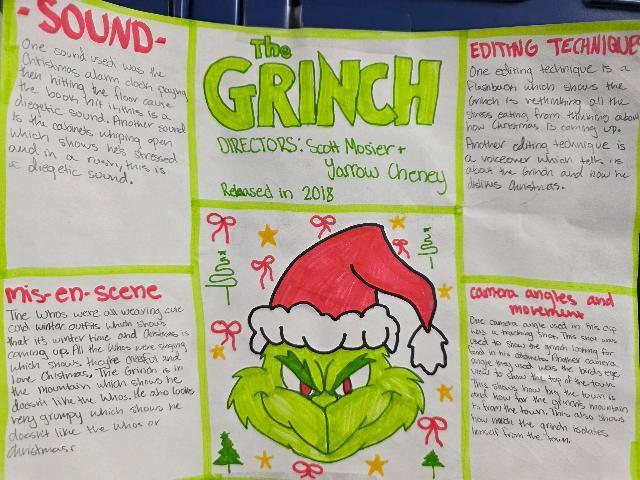 -SOUND-
One sound used was the
Christmas alarm clock playing
then hitting the floor cause
the book hit it this is a
diegetic sound. Another sound
is the cabinets whiping open
which shows he's stressed
and in a rush, this is
a diegetic sound.
The
GRINCH
DIRECTORS: Scott Mosier +
Yarrow Cheney
Released in 2018
EDITING TECHNIQUE
One editing technique is a
flashback which shows the
Grinch is rethinking all the
stress eating from thinking about
how Christmas is coming up.
Another editing technique is
a voiceover which talks
about the Grinch and how he
dislikes Christmas.
mis-en-scene
The Whos were all wearing cute
and winter outfits which shows
that it's winter time and Christmas is
coming up. All the Whos were singing
which shows they're and
love Christmas. The Grinch is in
the mountain which shows he
doesn't like the Whos. He also looks
very grumpy which shows he
doesn't like the whos or
christmas.
camera angles and
movement
One camera angle used in this clip
was a tracking shot. This shot was
used to show the grinch looking for
food in his Another camera
angle they used was the birds eye
view to show the top of the town.
This shows how big the town is
and how far the grinch's mountain
is from the town. This also shows
how much the grinch isolates
himself from the town.